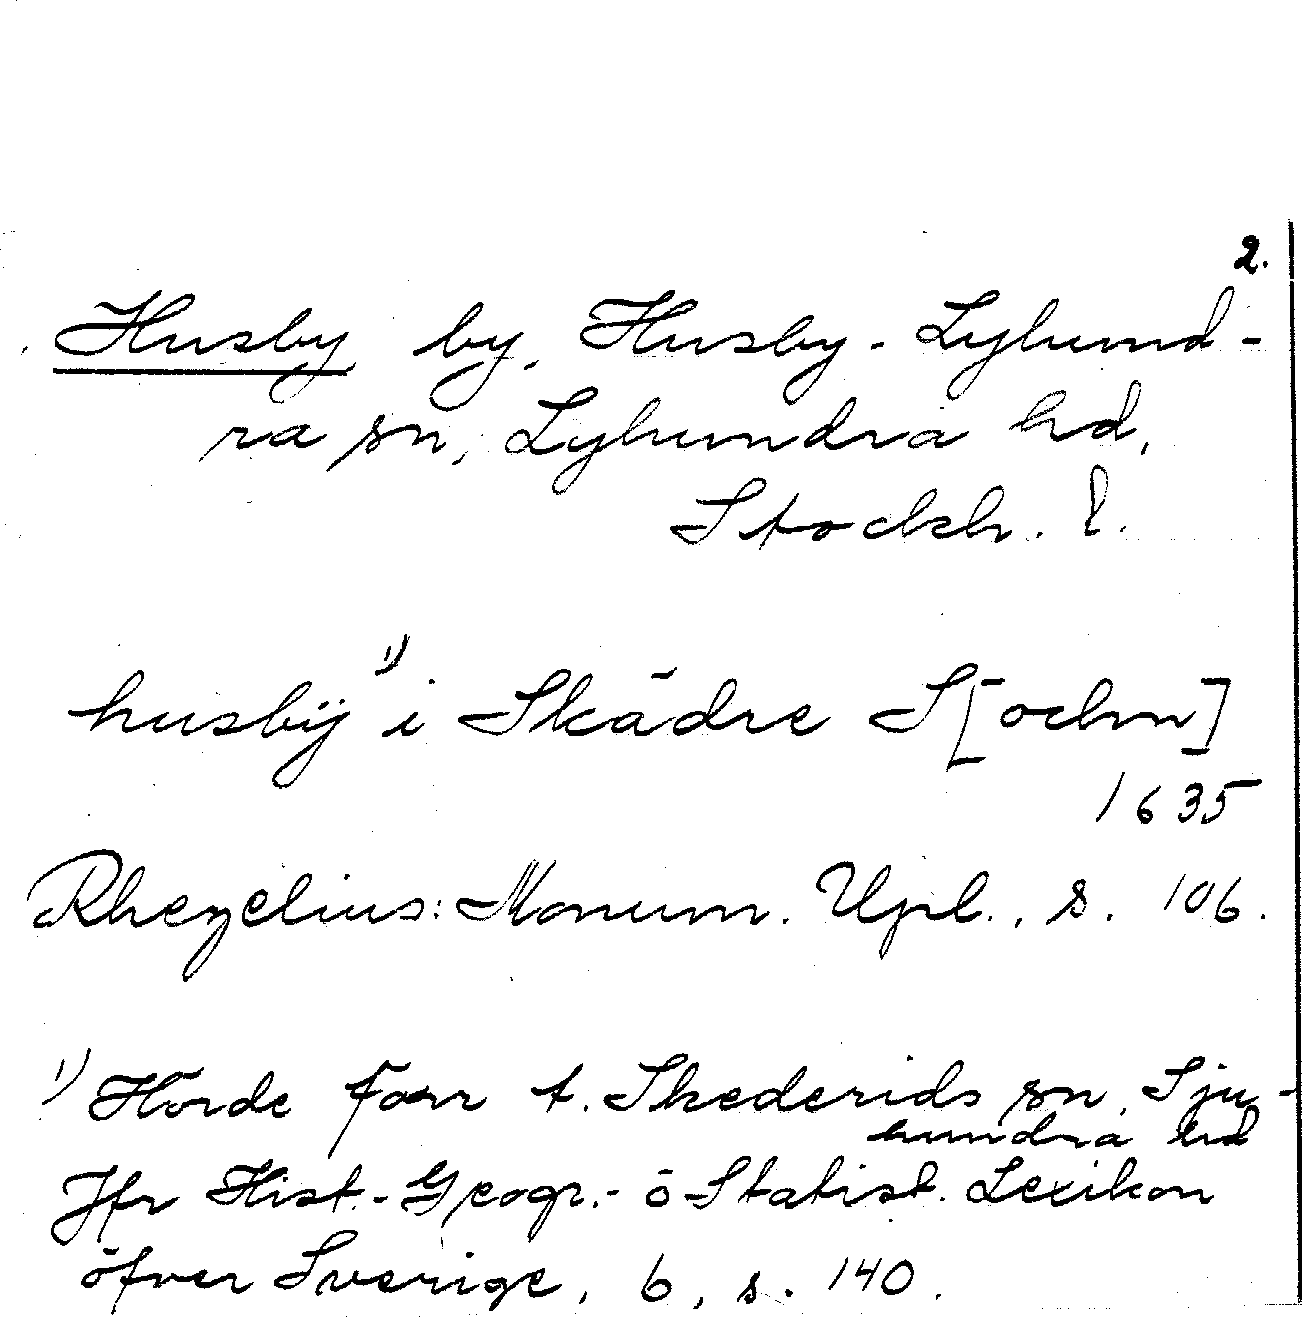 2.
Husby by, Husby-Lyhund-
ra sn, Lyhundra hd,
Stockh. l.
husbÿ ¹⁾ i Skädre S[ochn]
1635
Rhezelius: Monum. Upl., s. 106.
¹⁾ Hörde förr t. Skederids sn, Sju-
hundra hd
Jfr Hist.-Geogr.- o Statist. Lexikon
öfver Sverige, 6, s. 140.